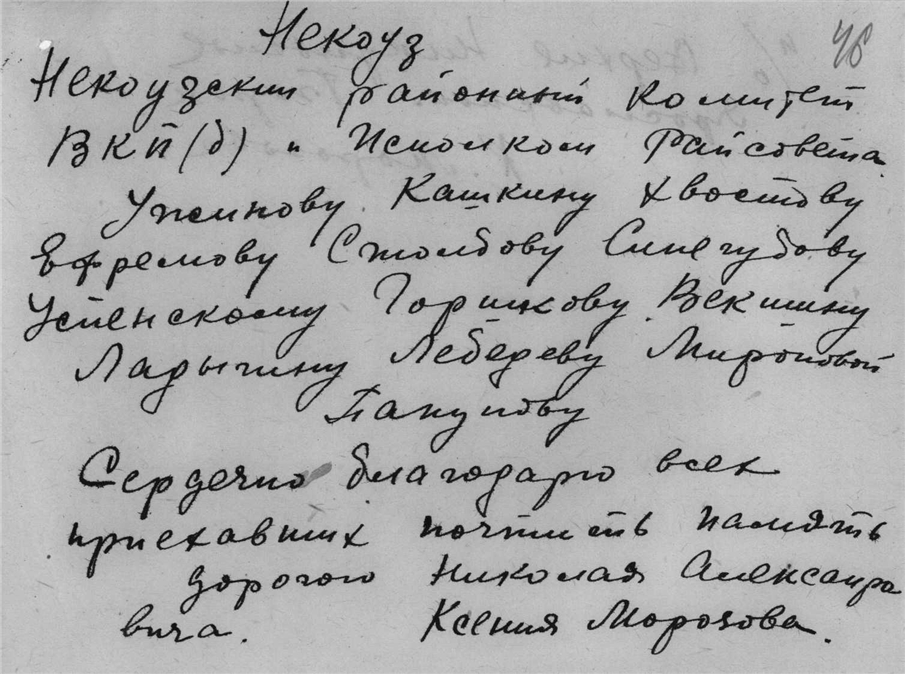 46
Некоуз
Некоузский районный комитет
ВКП(б) и Исполком Райсовета
Ужинову Кашкину Хвостову
Ефремову Столбову Синегубову
Успенскому Горшкову Векшину
Ладыгину Лебедеву Мироновой
Панунову
Сердечно благодарю всех
приехавших почтить память
дорогого Николая Алексанра
вича. Ксения Морозова.